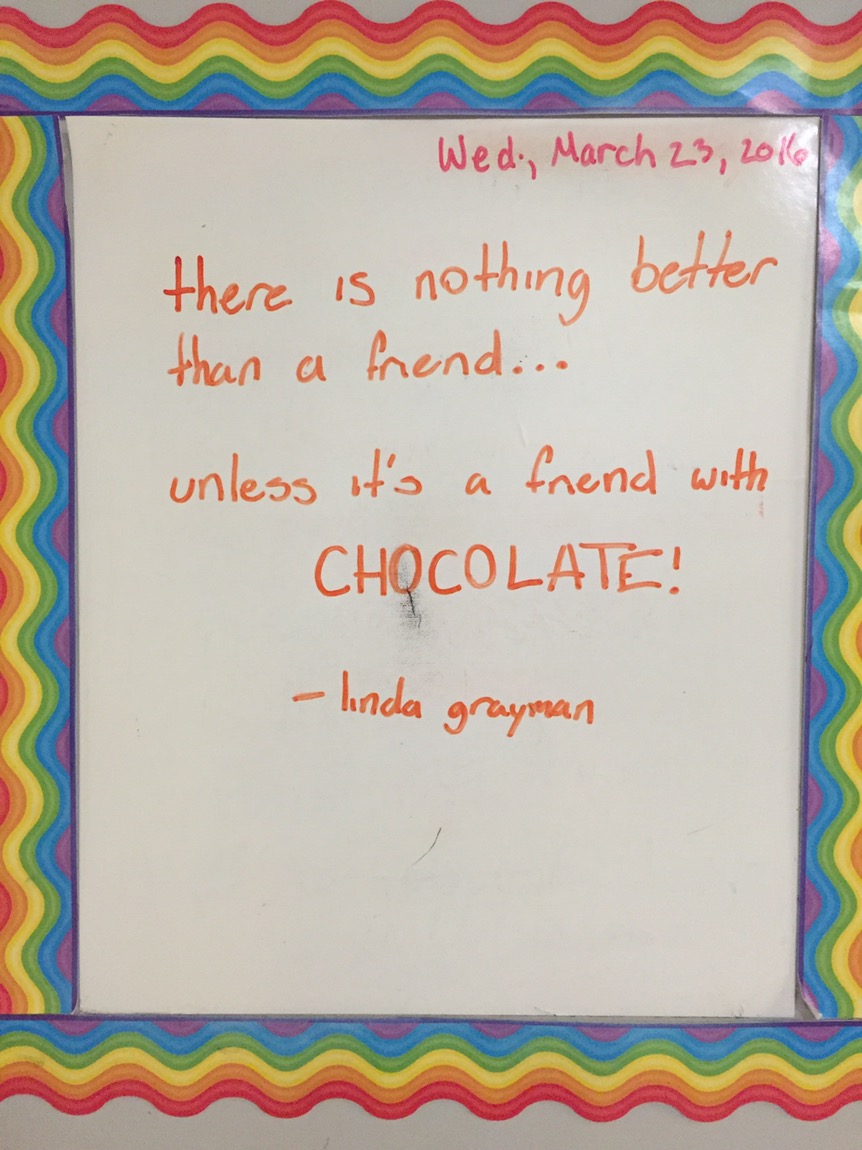 Wed., March 23, 2016
there is nothing better
than a friend...
unless it's a friend with
CHOCOLATE!
- linda grayman